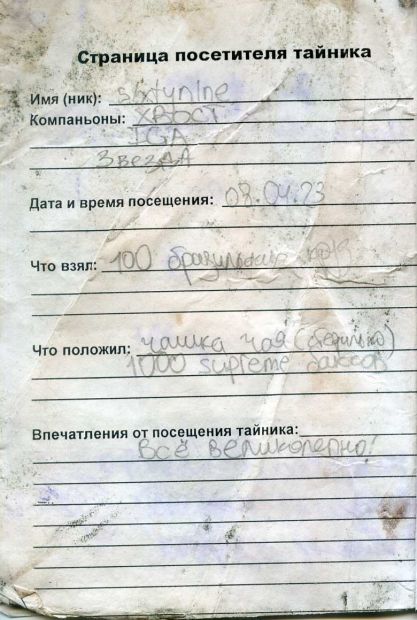 Страница посетителя тайника
Имя (ник): sixtynine
Компаньоны: ХВОСТ
IGA
ЗвезДА
Дата и время посещения: 08.04.23
Что взял: 100
Что положил: чашка чая
1000 supreme баксов
Впечатления от посещения тайника:
Всё великолепно!